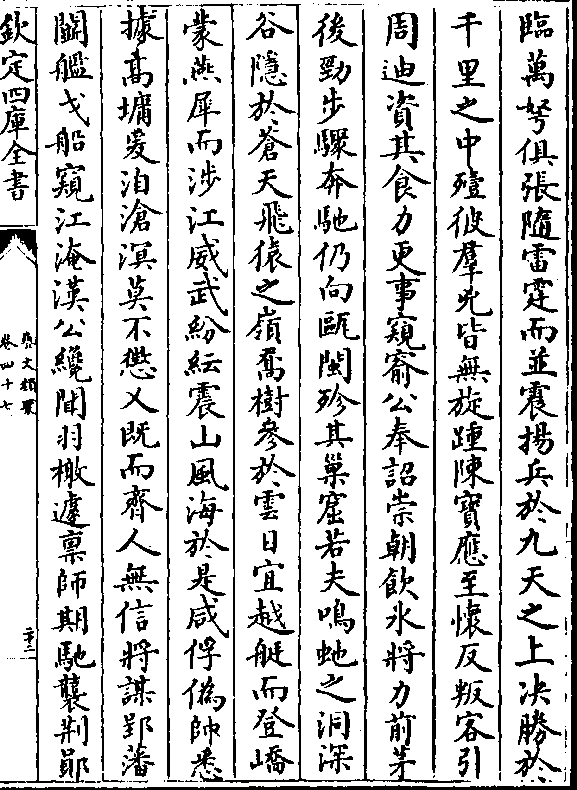 臨萬弩俱張隨雷霆而並震揚兵於九天之上决勝於
千里之中殪彼羣兇皆無旋踵陳寳應至懷反叛客引
周迪資其食力更事窺窬公奉詔崇朝飲氷將力前茅
後勁步驟奔馳仍向甌閩殄其巢窟若夫鳴虵之洞深
谷隠於蒼天飛猿之嶺喬樹參於雲日宜越艇而登嶠
蒙燕犀而涉江威武紛紜震山風海於是咸俘偽帥悉
據髙墉爰洎滄溟莫不懲乂既而齊人無信將謀郢藩
鬭艦戈船窺江淹漢公纔聞羽檄遽禀師期馳襲荆郧
欽定四庫全書
藝文類聚
卷四十七